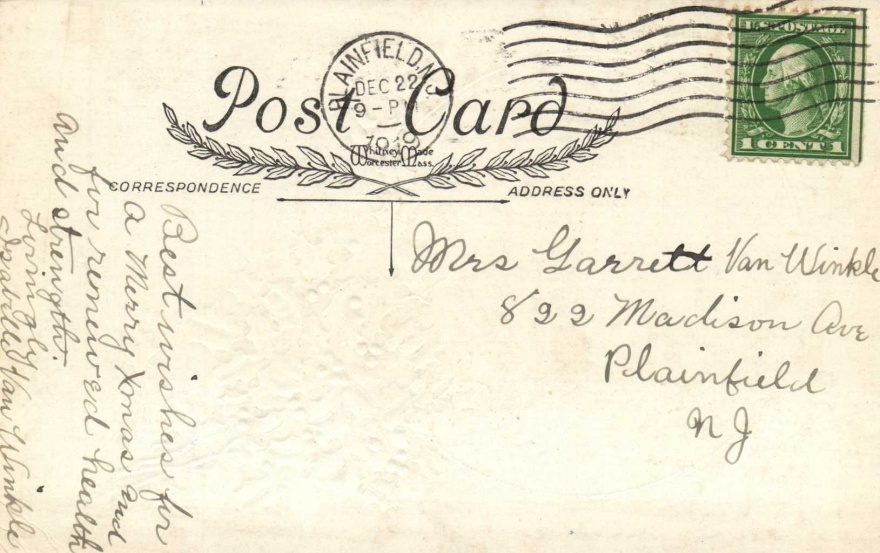 PLAINFIELD, N.J.
DEC 22
9-PM
U.S. POSTAGE
1 CENT 1
Post Card
Whitney Made
Worcester, Mass.
CORRESPONDENCE
ADDRESS ONLY
Best wishes for
a Merry Xmas and
for renewed health
and strength.
Lovingly
Isabelle Van Winkle
Mrs Garrett Van Winkle
822 Madison Ave
Plainfield
NJ